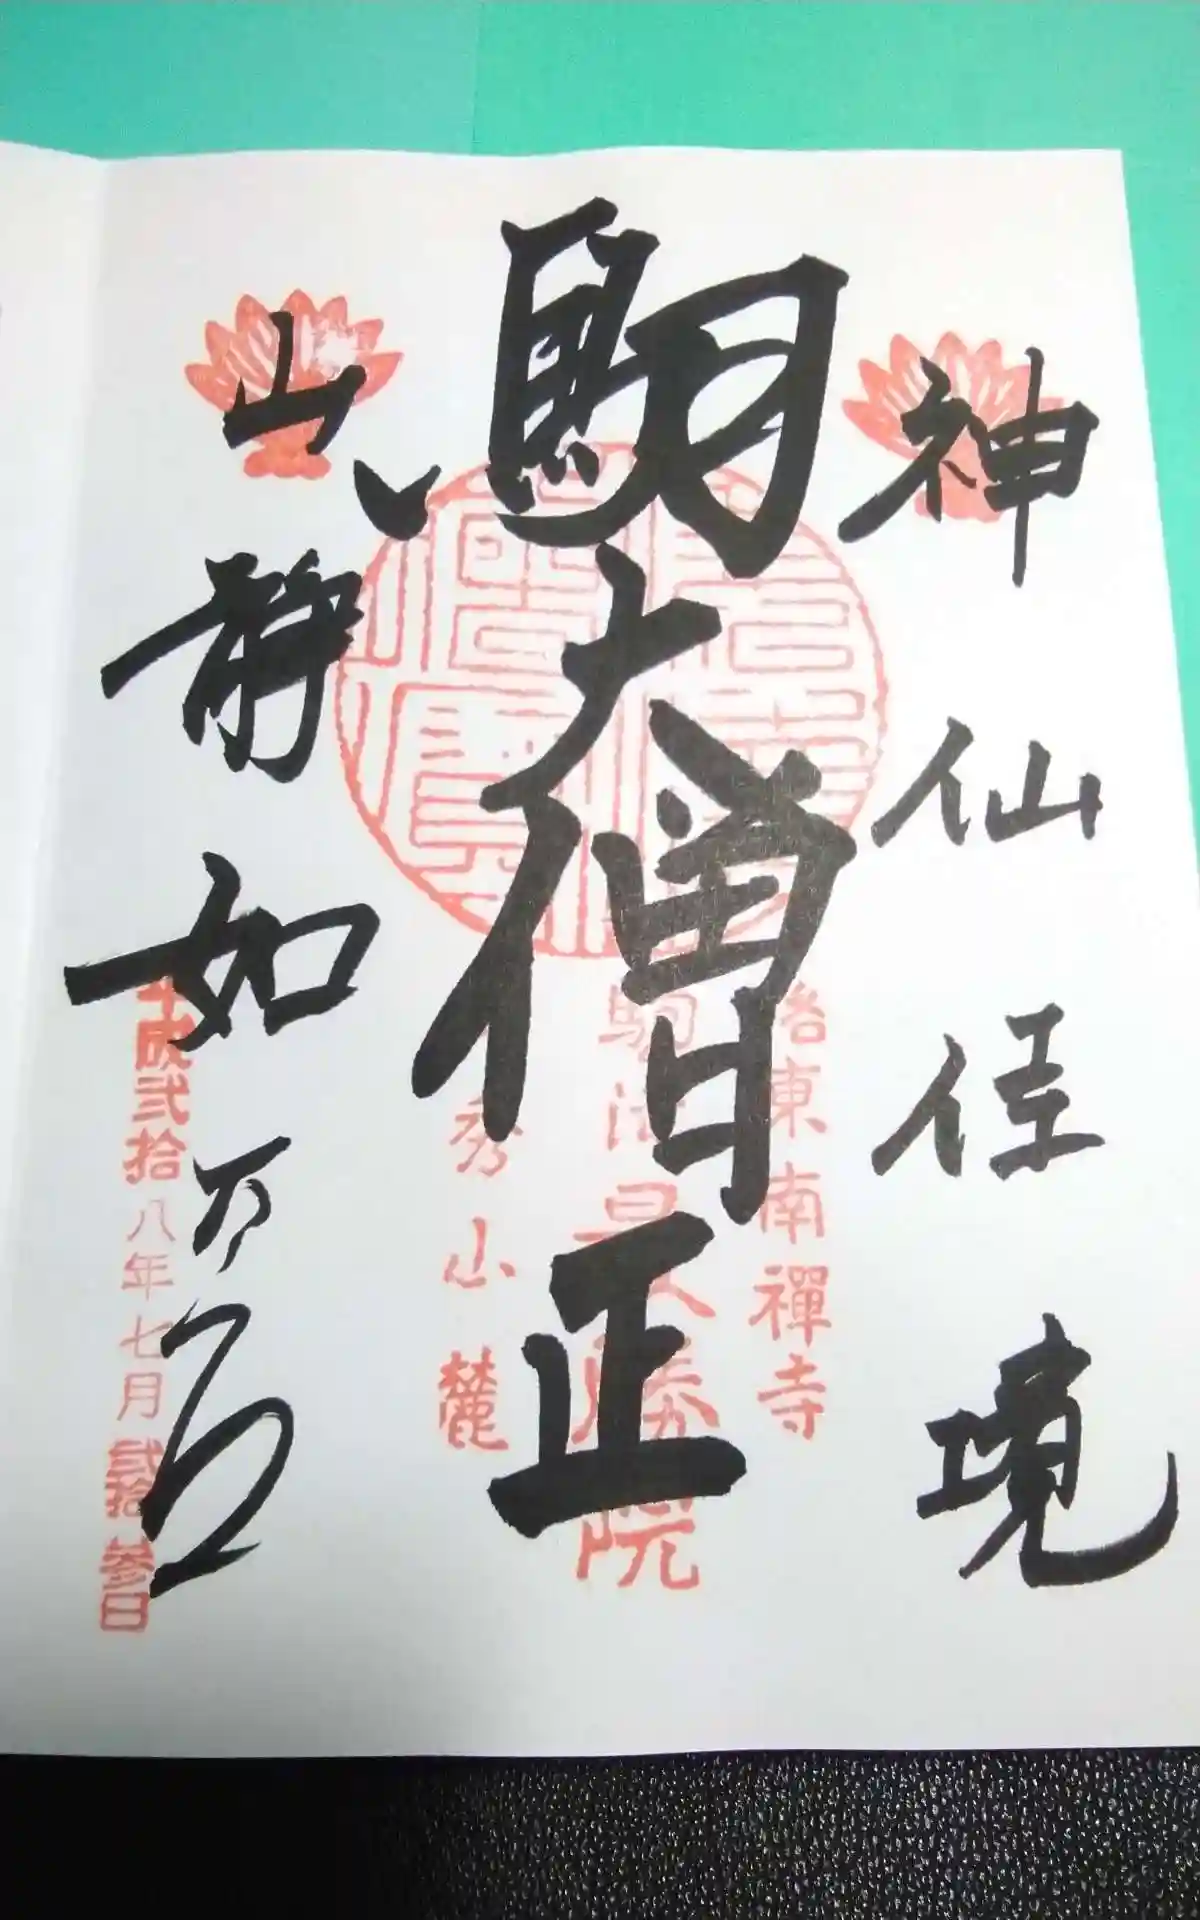 神仙佳境
駒大僧正
山静如万古
洛東南禪寺
駒 最勝院
秀山麓
平成弐拾八年七月弐拾参日